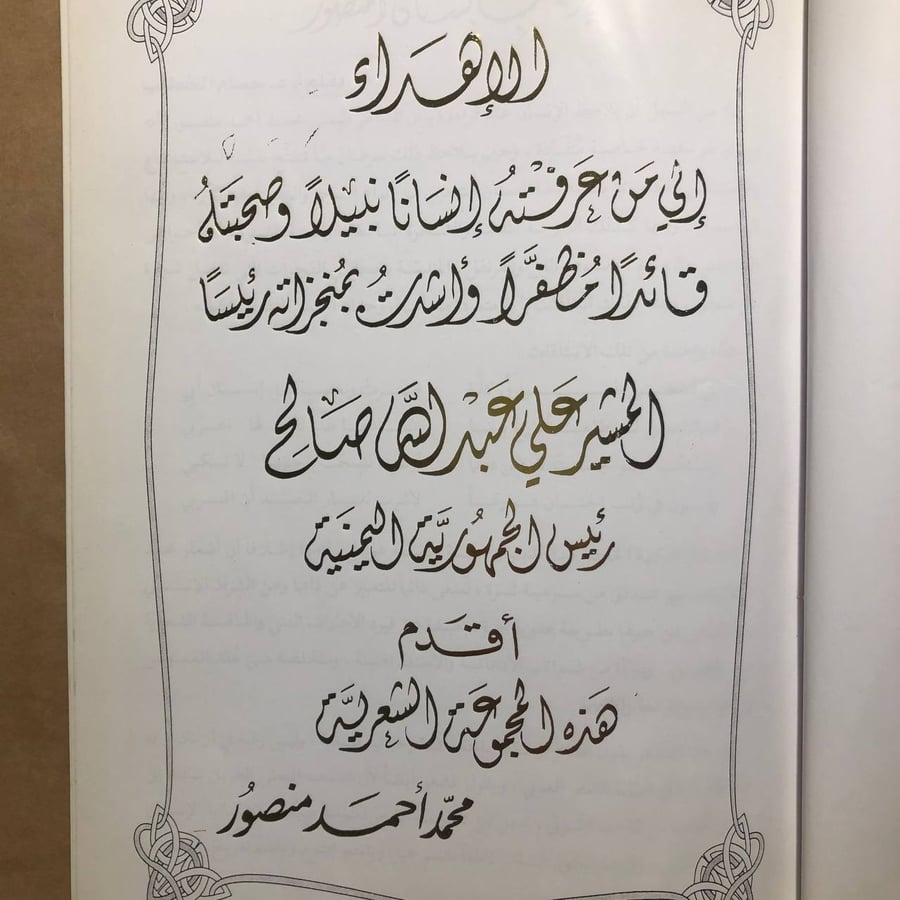 الإهداء
إلى مَن عَرَفْتهُ إنسَانًا نبيلاً وصحبتهُ
قائدًا مُظفرًا وأشدتُ بمُنجزاته رئيسًا
المشير عَلي عَبد الله صَالح
رئيس الجمهُوريَّة اليمنية
أقدم
هَذه المجموعَة الشعريَّة
محمّد أحمَد منصُور